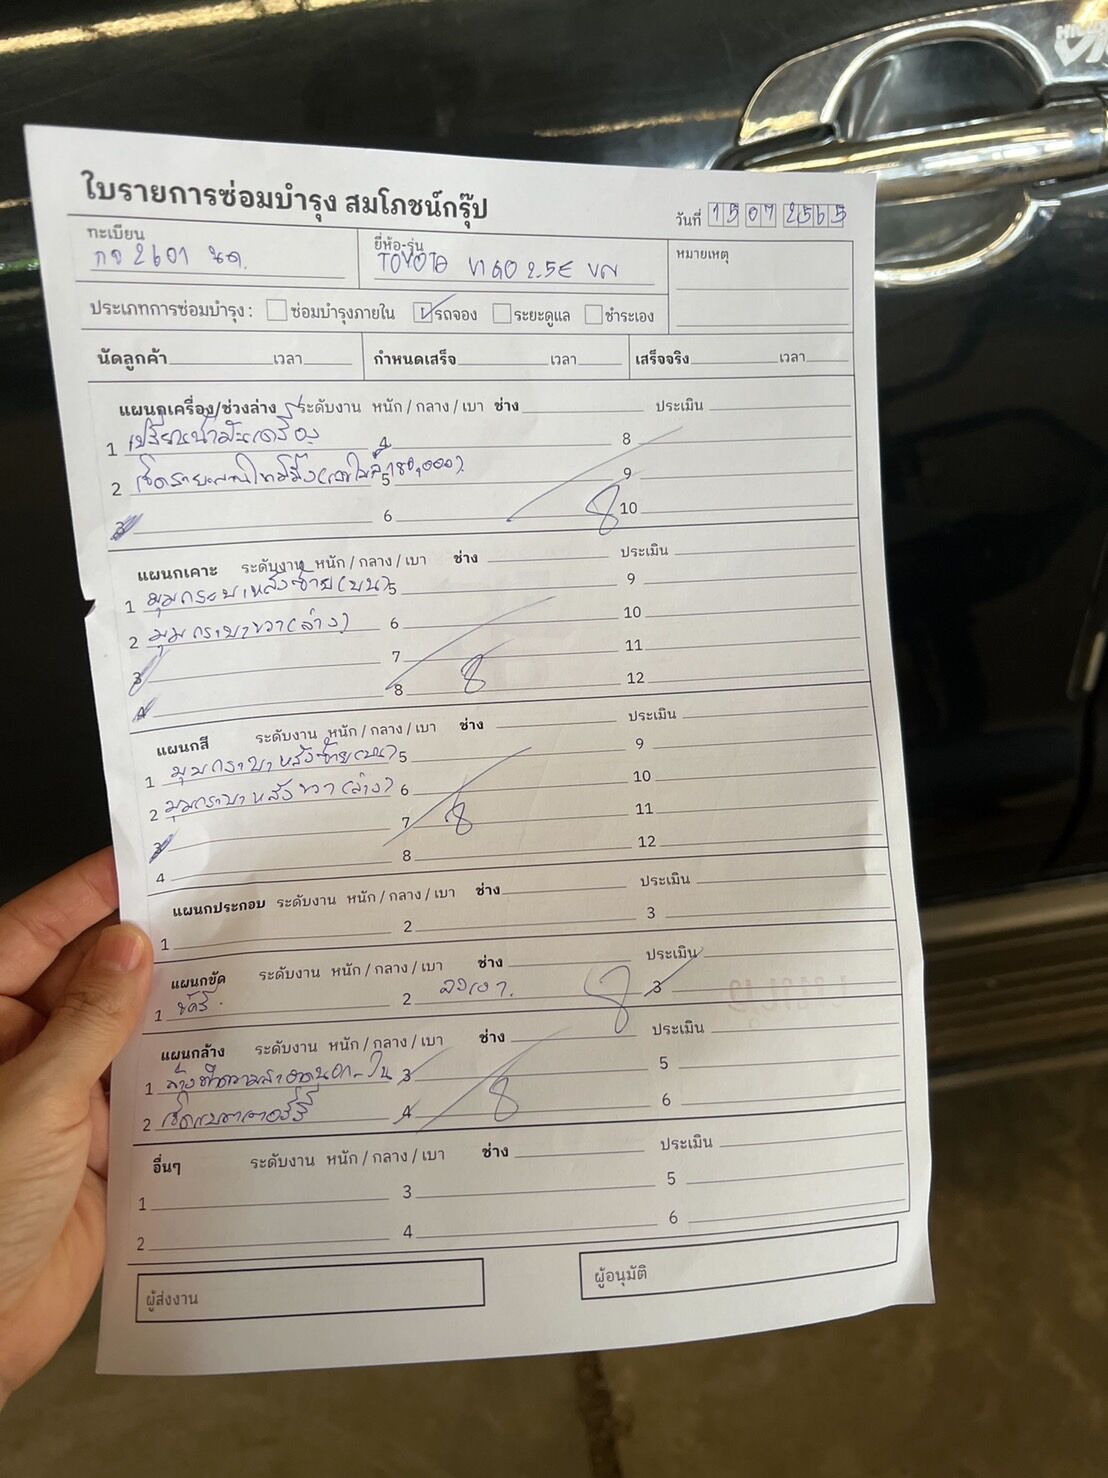 ใบรายการซ่อมบำรุง สมโภชน์กรุ๊ป
วันที่ 15 07 2565
ทะเบียน ยี่ห้อ-รุ่น หมายเหตุ
2601 TOYOTA VIGO 2.5E
ประเภทการซ่อมบำรุง : ซ่อมบำรุงภายใน รถจอง ระยะดูแล ชำระเอง
นัดลูกค้า เวลา กำหนดเสร็จ เวลา เสร็จจริง เวลา
แผนกเครื่อง/ช่วงล่าง ระดับงาน หนัก / กลาง / เบา ช่าง ประเมิน
1 เปลี่ยนน้ำมันเครื่อง 4 8
2 5 9
3 6 10
แผนกเคาะ ระดับงาน หนัก / กลาง / เบา ช่าง ประเมิน
1 มุมกระบะหลังซ้าย(บน) 5 9
2 มุมกระบะขวา(ล่าง) 6 10
3 7 11
4 8 12
แผนกสี ระดับงาน หนัก / กลาง / เบา ช่าง ประเมิน
1 มุมกระบะหลังซ้าย(บน) 5 9
2 มุมกระบะหลังขวา(ล่าง) 6 10
3 7 11
4 8 12
แผนกประกอบ ระดับงาน หนัก / กลาง / เบา ช่าง ประเมิน
1 2 3
แผนกขัด ระดับงาน หนัก / กลาง / เบา ช่าง ประเมิน
1 ขัดสี 2 ลงเงา 3
แผนกล้าง ระดับงาน หนัก / กลาง / เบา ช่าง ประเมิน
1 ล้างทำความสะอาดนอก-ใน 3 5
2 เช็คแบตเตอร์รี่ 4 6
อื่นๆ ระดับงาน หนัก / กลาง / เบา ช่าง ประเมิน
1 3 5
2 4 6
ผู้ส่งงาน ผู้อนุมัติ